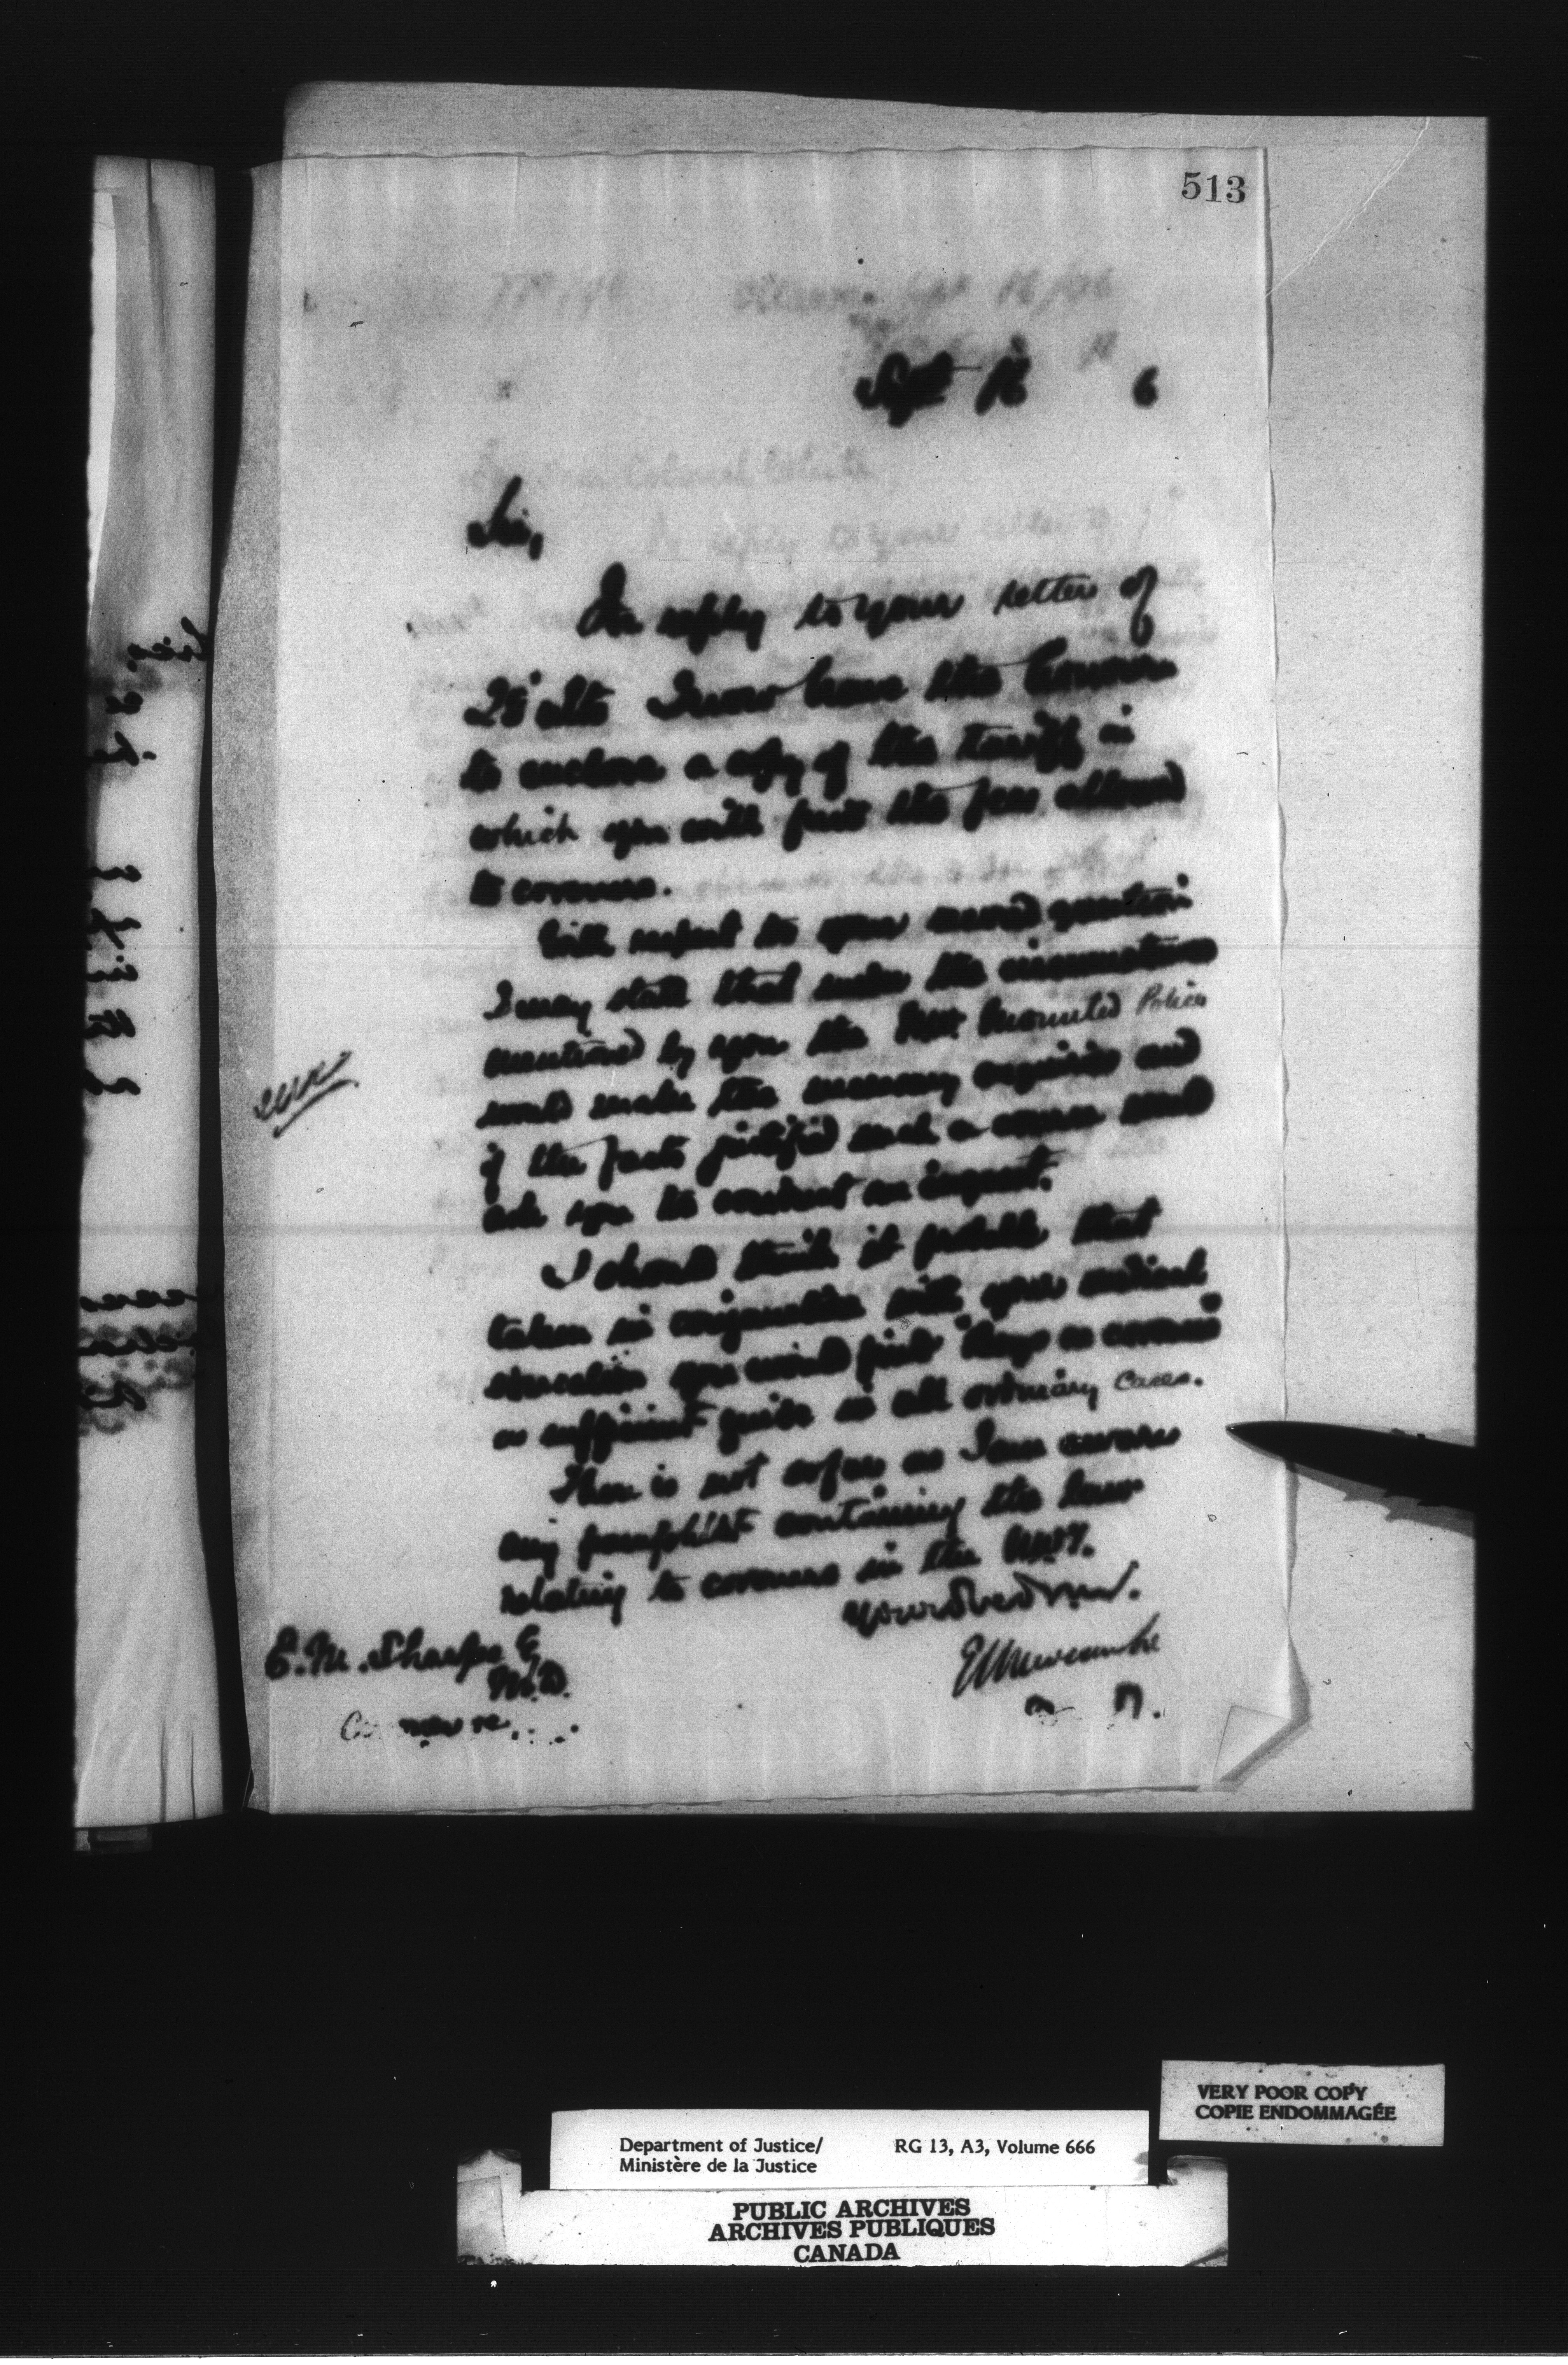 513
Sept 16 6
Sir,
In reply to your letter of
28 ulto I now have the honour
to enclose a copy of the tariff in
which you will find the fees allowed
to coroners.
With respect to your second question
I may state that under the circumstances
mentioned by you the N.W. Mounted Police
would make the necessary enquiries and
if the facts justified such a course would
ask you to conduct an inquest.
I should think it probable that
taken in conjunction with your medical
education you would find Boys on coroners
a sufficient guide in all ordinary cases.
There is not so far as I am aware
any pamphlet containing the law
relating to coroners in the N.W.T.
Your obed
E L Newcombe
E. M. Sharpe
M.D.
VERY POOR COPY
COPIE ENDOMMAGÉE
Department of Justice/ RG 13, A3, Volume 666
Ministère de la Justice
PUBLIC ARCHIVES
ARCHIVES PUBLIQUES
CANADA